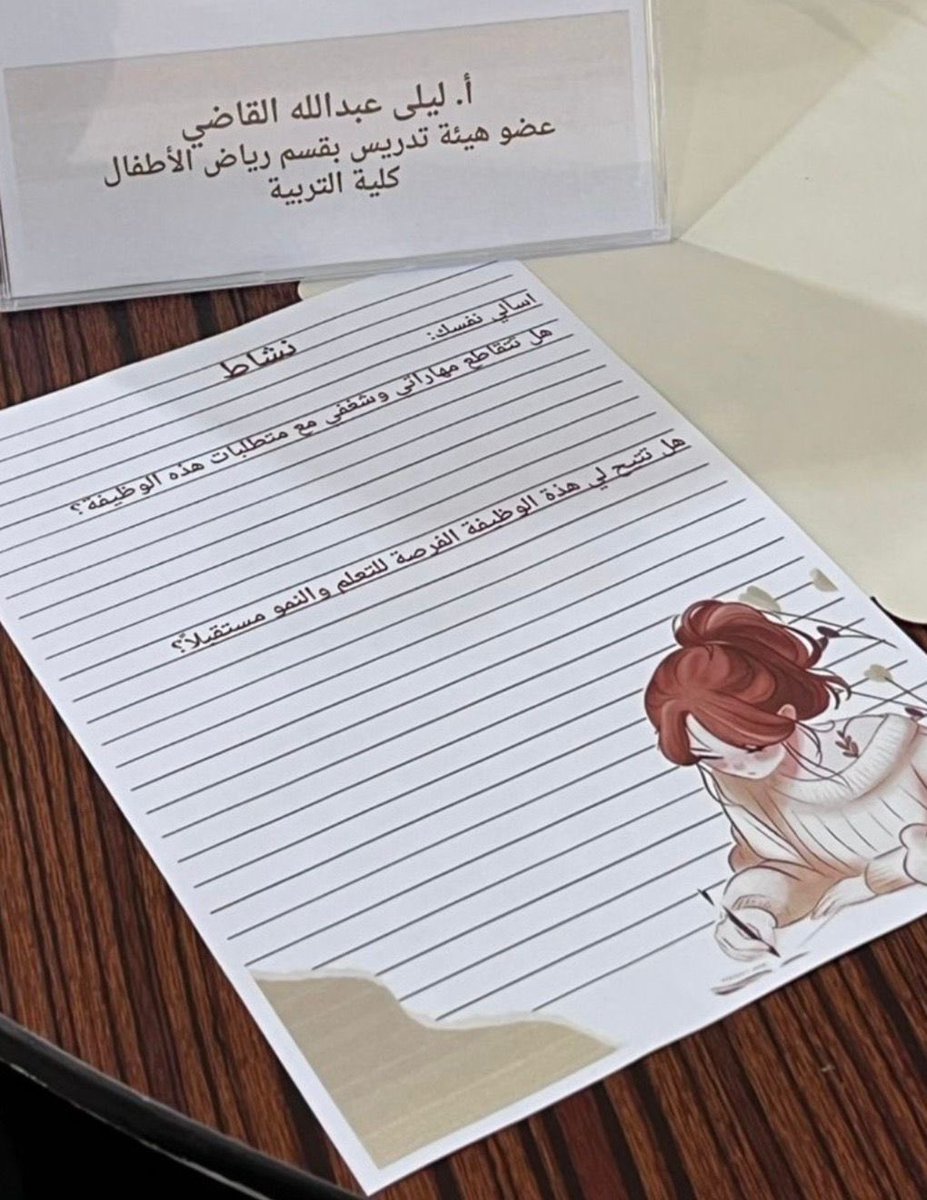 أ. ليلى عبدالله القاضي
عضو هيئة تدريس بقسم رياض الأطفال
كلية التربية
نشاط
اسألي نفسك:
هل تتقاطع مهاراتي وشغفي مع متطلبات هذه الوظيفة؟
هل تتيح لي هذة الوظيفة الفرصة للتعلم والنمو مستقبلاً؟